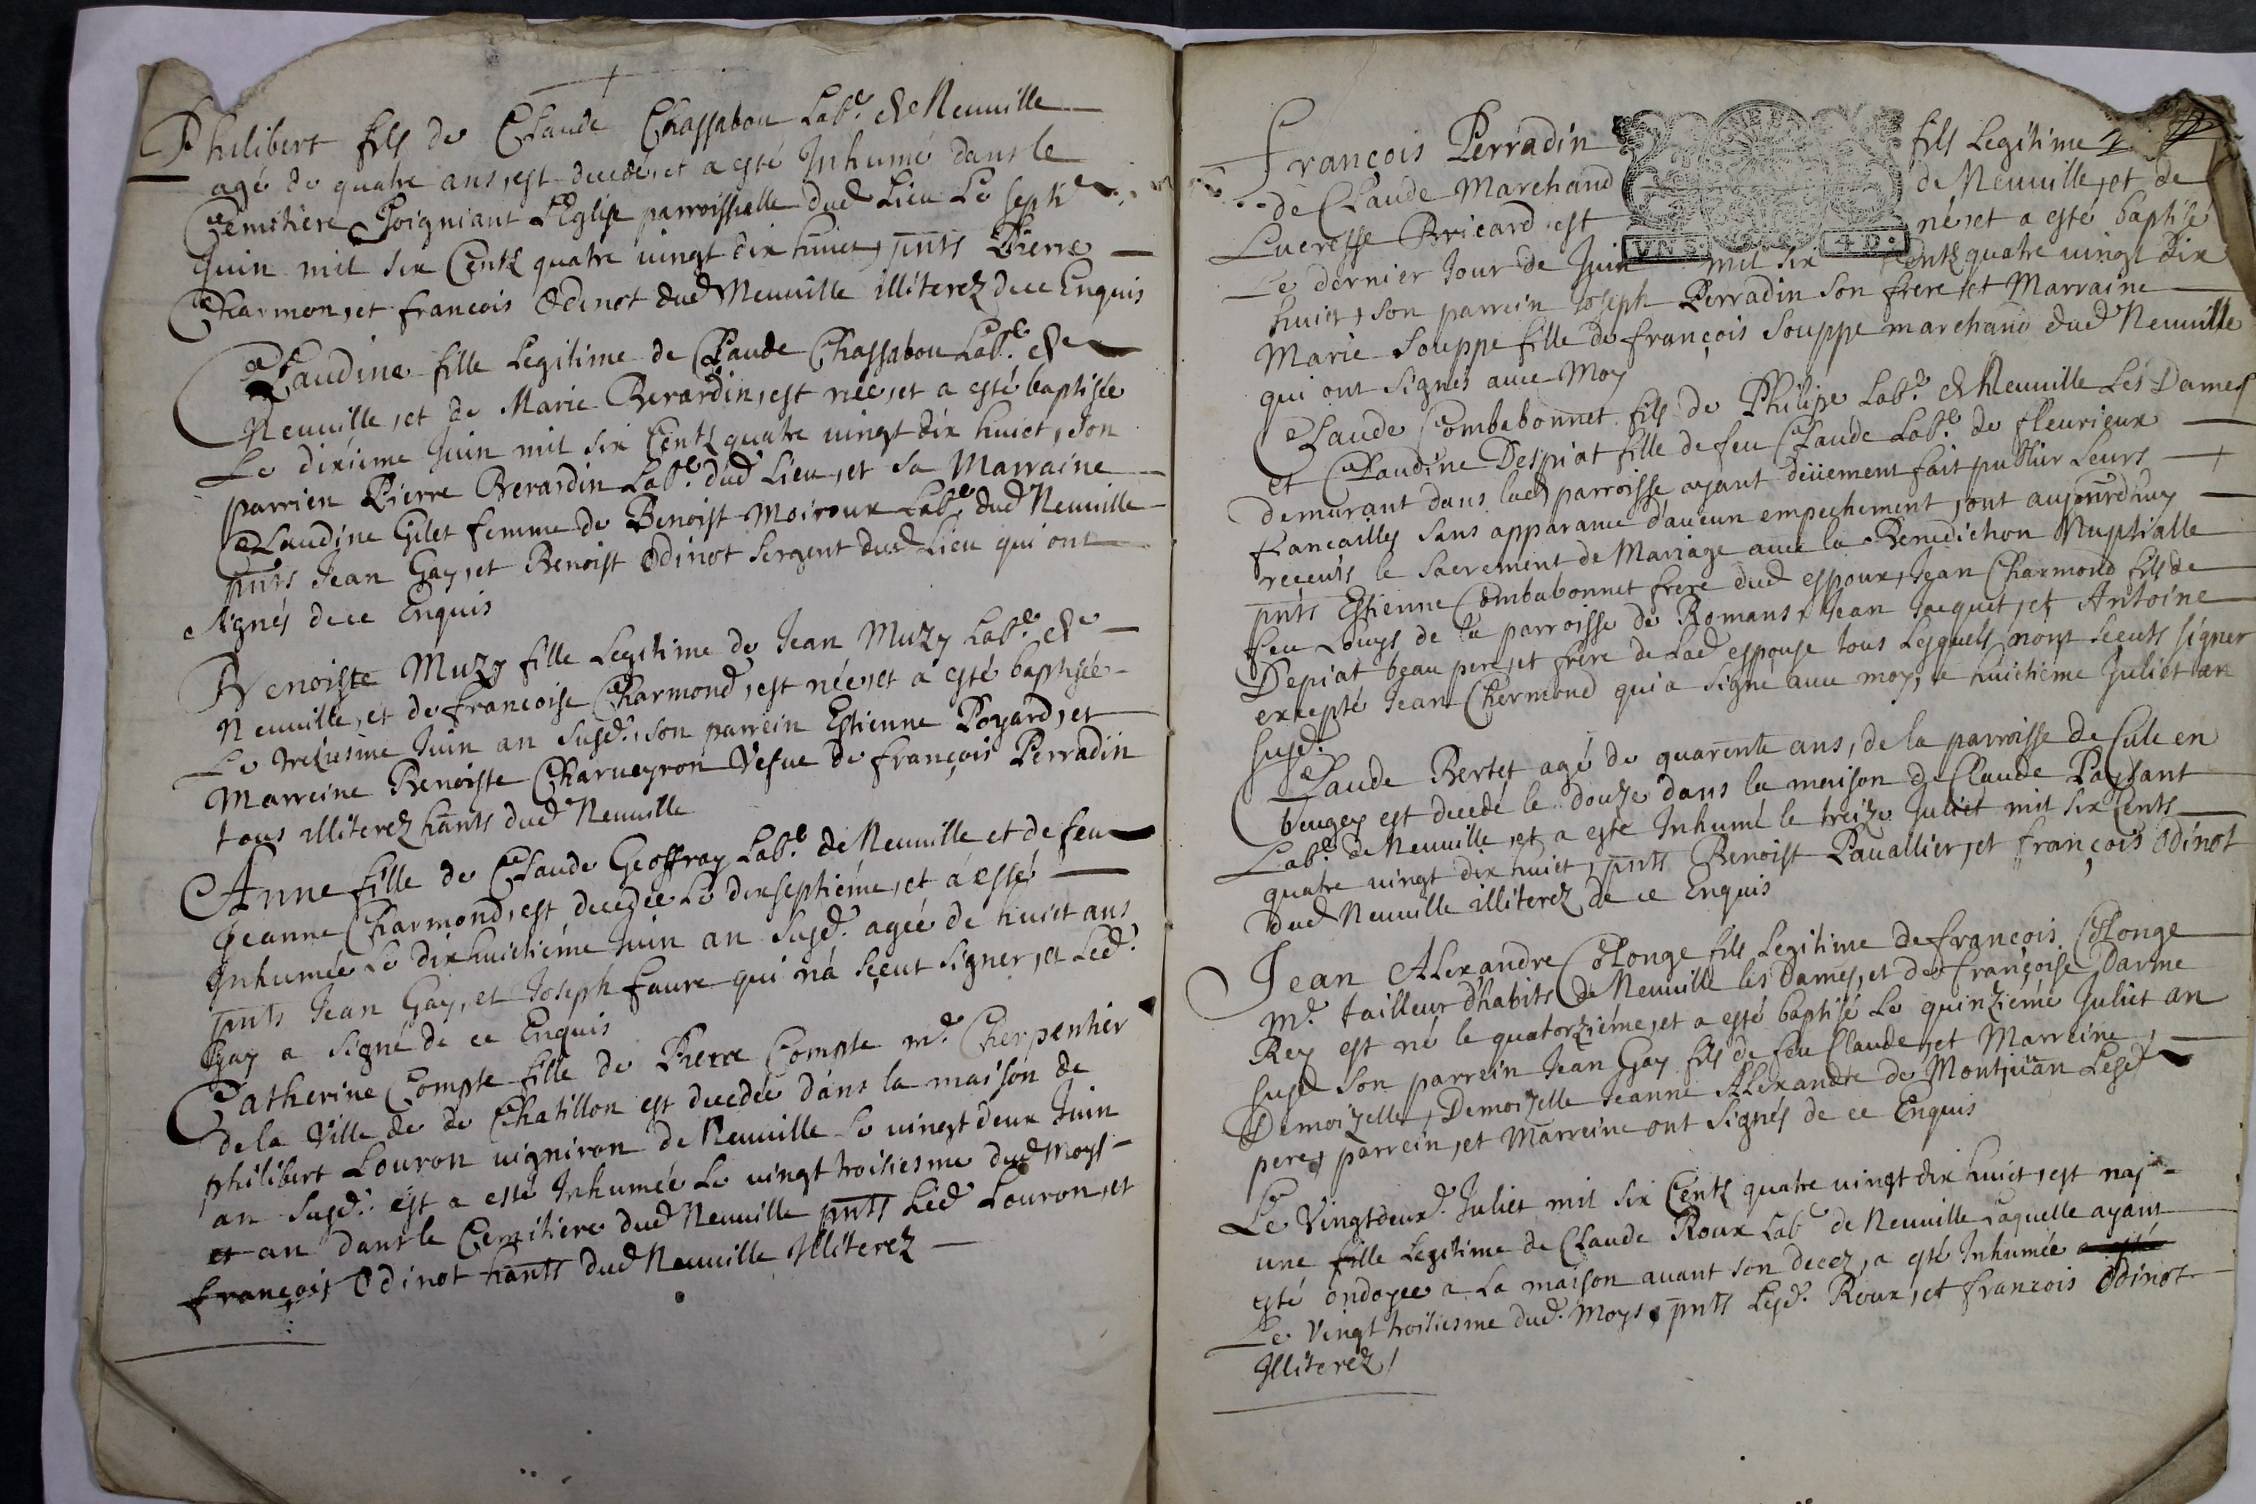 Philibert fils de Claude Chassabou Labr. de Neuuille
agé de quatre ans, est decedé, et a esté Inhumé dans le
Cemitière Joigniant L'Eglise parroissialle dud Lieu Le sept
Juin mil six Centz quatre uingt dix huict, pnts Pierre
Charmon, et francois Odinot dud Neuuille illiterez de ce Enquis
Claudine fille Legitime de Claude Chassabou Labr. de
Neuuille, et de Marie Berardin, est née, et a esté baptisée
Le dixiéme Juin mil six Centz quatre uingt dix huict, son
parrien Pierre Berardin Labr. dud Lieu, et sa Marraine
Claudine Gilet femme de Benoist Moiroux Labr. dud Neuuille
pnts Jean Gay, et Benoist Odinot sergent dud Lieu qui ont
signés de ce Enquis
Benoiste Muzy fille Legitime de Jean Muzy Labr. de
Neuuille, et de francoise Charmond, est née, et a esté baptisée
Le treziesme Juin an susd. son parrein Estienne Poyard, et
Marreine Benoiste Charueyron Vefue de françois Perradin
tous illiterez hants dud Neuuille
Anne fille de Claude Geoffray Labr. de Neuuille et de feu
Jeanne Charmond, est decedée Le dixseptiéme, et a esté
Inhumée Le dix huictiéme Juin an susd. agée de huict ans
pnts Jean Gay, et Joseph faure qui n'a sçeut signer, et Led.
Gay a signé de ce Enquis
Catherine Compte fille de Pierre Compte mr. Cherpentier
de la Ville de de Chatillon est decedée dans la maison de
philibert Louron uigniron de Neuuille Le uingt deux Juin
an susd. est a esté Inhumée Le uingt troisiesme dud Moys
et an dans le Cemitiere dud Neuuille pnts Led Louron, et
françois Odinot hants dud Neuuille Illiterez
François Perradin fils Legitime
de Claude Marchand de Neuuille, et de
Lucresse Bricard est né, et a esté baptisé
Le dernier Jour de Juin mil six Centz quatre uingt dix
huict, son parrein Joseph Perradin son frere et Marraine
Marie Souppe fille de françois Souppe marchand dud Neuuille
qui ont signés auec Moy
VN S. 4 D.
Claude Combabonnet fils de Philipe Labr. de Neuuille Les Dames
et Claudine Despiat fille de feu Claude Labr. de fleurieux
demurant dans lad parroisse ayant düement fait publier Leurs
fiancailles sans apparance d'aucun empechement, ont aujourdhuy
receuts le sacrement de Mariage auec la Benediction Nuptialle
pnts Estienne Combabonnet frere dud espoux, Jean Charmond fils de
feu Louys de la parroisse de Romans, Jean Jacquet, et Antoine
Depiat beau pere, et frere de Lad espouse tous Lesquels nont sceuts signer
excepté Jean Chermond qui a signe auec moy, e huictiéme Juliet an
susd.
Claude Bertet agé de quarente ans, de la parroisse de Cule en
beugey est decedé le douze dans la maison de Claude Paysant
Labr. de Neuuille, et a esté Inhumé le treize Juliet mil six Cents
quatre uingt dix huict, pnts Benoist Pauallier, et françois Odinot
dud Neuuille illiterez de ce Enquis
Jean Alexandre Colonge fils Legitime de françois Colonge
Mr. tailleur d'habits de Neuuille les Dames, et de françoise Darme
Rey est né le quatorziéme, et a esté baptisé Le quinziéme Juliet an
susd son parrein Jean Gay fils de feu Claude, et Marreine
Demoizelle, Demoizelle Jeanne Alexandre de Montjuan Lesd
pere, parrein, et Marreine ont signés de ce Enquis
Le Vingtdeux. Juliet mil six Centz quatre uingt dix huict, est naj
une fille Legitime de Claude Roux Labr de Neuuille Laquelle ayant
esté ondoyée a La maison auant son decez, a esté Inhumée a esté
Le Vingt troisiesme dud. Moys, pnts Lesd. Roux, et francois Odinot
Illiterez